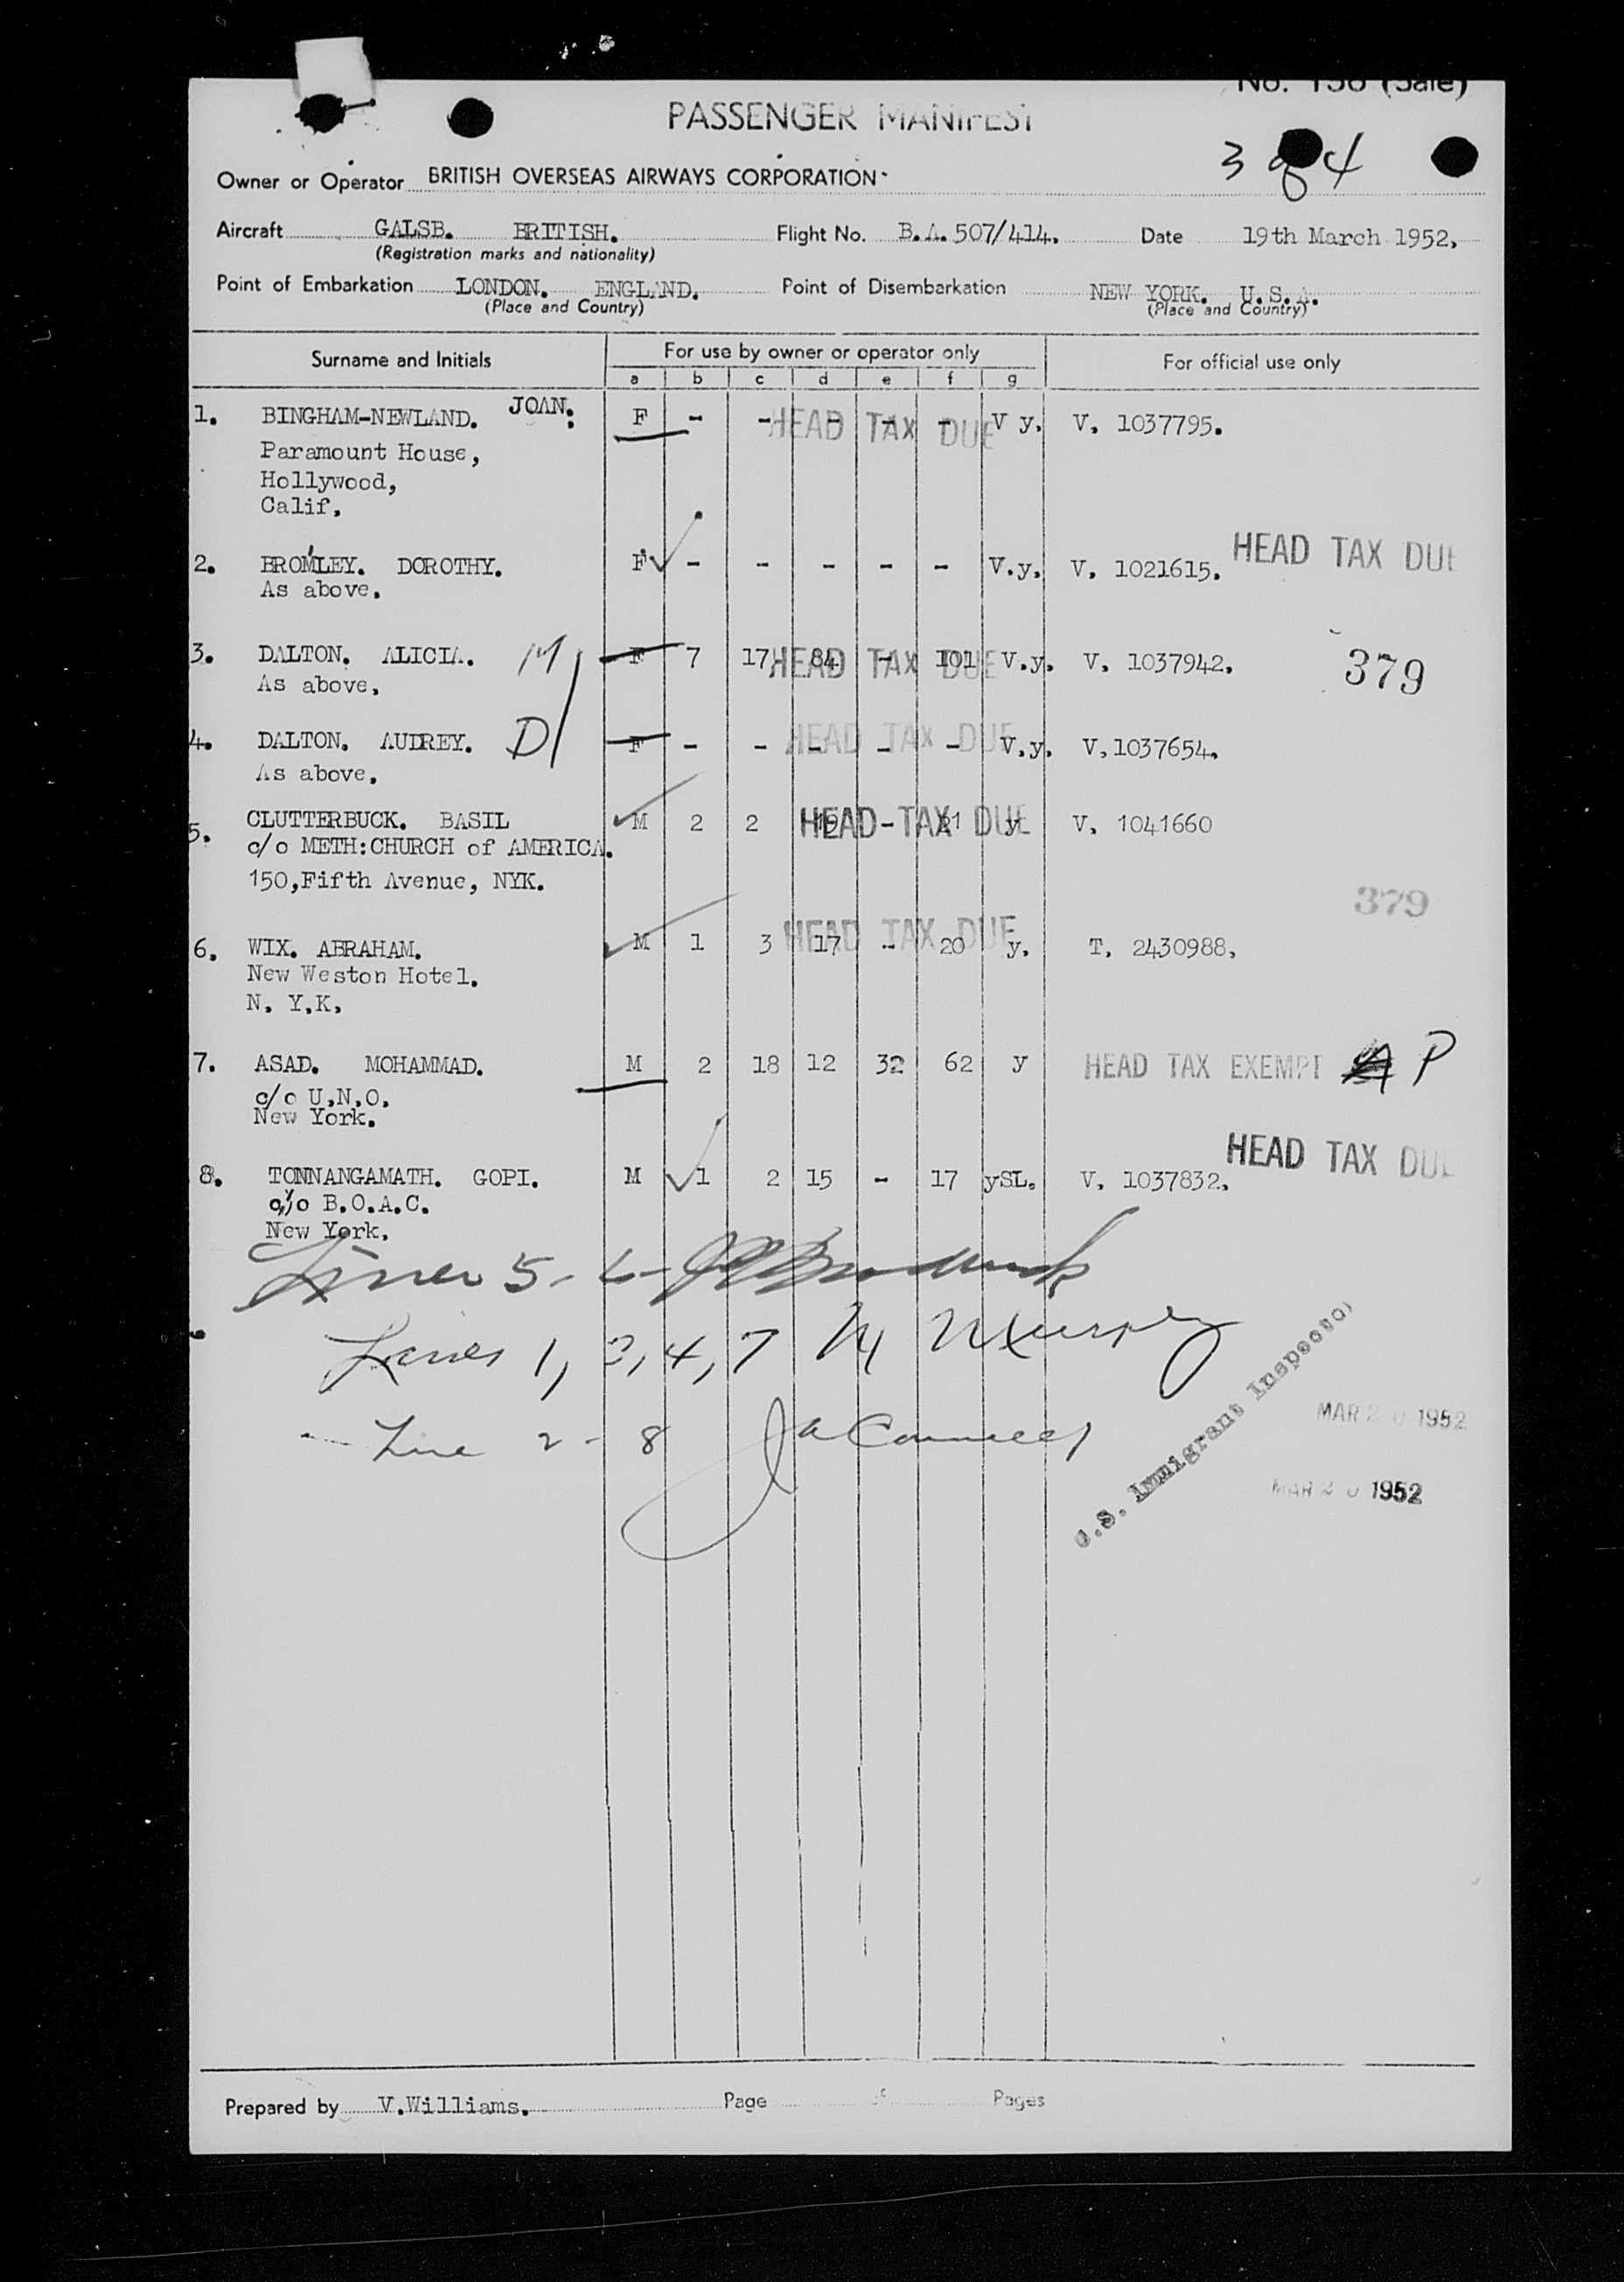 PASSENGER MANIFEST
3 of 4
Owner or Operator BRITISH OVERSEAS AIRWAYS CORPORATION
Aircraft GALSB. BRITISH. Flight No. B.A.507/414. Date 19th March 1952.
(Registration marks and nationality)
Point of Embarkation LONDON. ENGLAND. Point of Disembarkation NEW YORK. U.S.A.
(Place and Country) (Place and Country)
Surname and Initials For use by owner or operator only For official use only
a b c d e f g
1. BINGHAM-NEWLAND. JOAN. F - - - - - V y. V. 1037795.
HEAD TAX DUE
Paramount House,
Hollywood,
Calif.
2. BROMLEY. DOROTHY. F - - - - - V.y. V. 1021615. HEAD TAX DUE
As above.
3. DALTON. ALICIA. M F 7 17 84 - 101 V.y. V. 1037942. 379
HEAD TAX DUE
As above.
4. DALTON. AUDREY. D F - - - - - V.y. V.1037654.
HEAD TAX DUE
As above.
5. CLUTTERBUCK. BASIL M 2 2 - y V. 1041660
HEAD TAX DUE
c/o METH:CHURCH of AMERICA.
150,Fifth Avenue, NYK.
379
6. WIX. ABRAHAM. M 1 3 17 - 20 y. T. 2430988.
HEAD TAX DUE
New Weston Hotel.
N. Y.K.
7. ASAD. MOHAMMAD. M 2 18 12 32 62 y HEAD TAX EXEMPT P
c/o U.N.O.
New York.
8. TONNANGAMATH. GOPI. M 1 2 15 - 17 ySL. V. 1037832. HEAD TAX DUE
c/o B.O.A.C.
New York.
Lines 5-6-
Lines 1, 3, 4, 7 M Murphy
Line 2 - 8
U.S. Immigrant Inspector
MAR 20 1952
MAR 20 1952
Prepared by V.Williams. Page of Pages